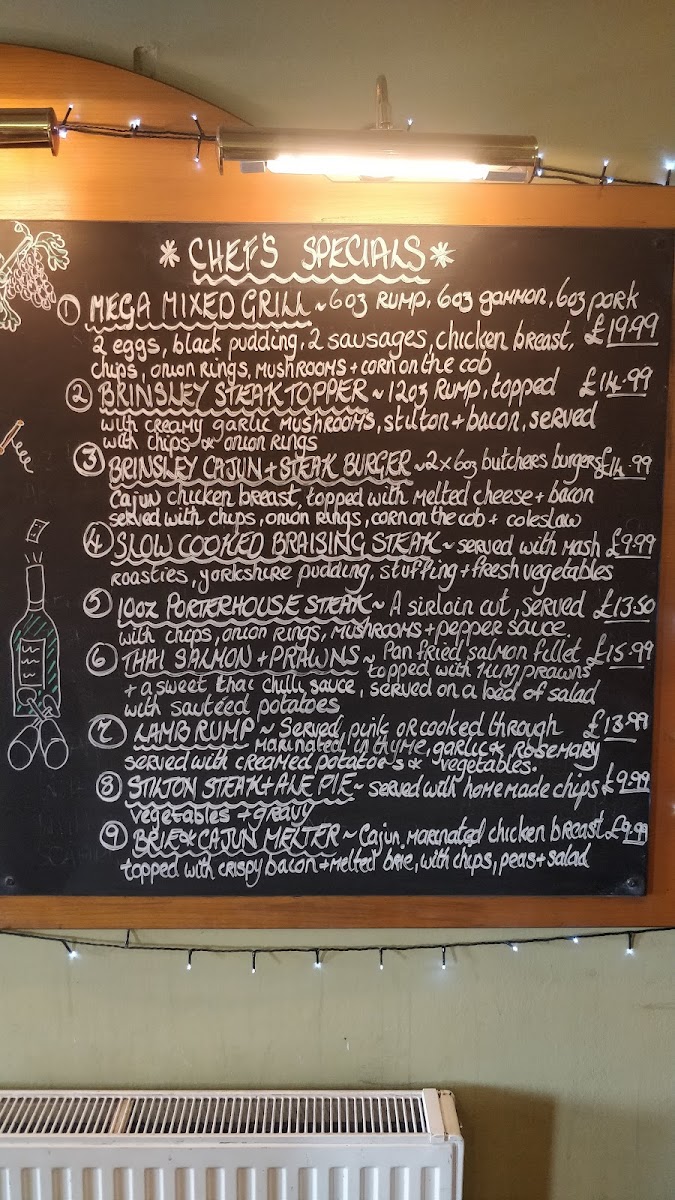 * CHEF'S SPECIALS *
① MEGA MIXED GRILL ~ 6oz RUMP, 6oz gammon, 6oz pork
2 eggs, black pudding, 2 sausages, chicken breast, £19.99
chips, onion rings, mushrooms + corn on the cob
② BRINSLEY STEAK TOPPER ~ 12oz RUMP, topped £14.99
with creamy garlic mushrooms, stilton + bacon, served
with chips & onion rings
③ BRINSLEY CAJUN + STEAK BURGER ~ 2x6oz butchers burgers £14.99
Cajun chicken breast, topped with melted cheese + bacon
served with chips, onion rings, corn on the cob + coleslaw
④ SLOW COOKED BRAISING STEAK ~ served with mash £9.99
roasties, yorkshire pudding, stuffing + fresh vegetables
⑤ 10oz PORTERHOUSE STEAK ~ A sirloin cut, served £13.50
with chips, onion rings, mushrooms + pepper sauce.
⑥ THAI SALMON + PRAWNS ~ Pan fried salmon fillet £15.99
topped with king prawns
+ a sweet thai chilli sauce, served on a bed of salad
with sauteéd potatoes
⑦ LAMB RUMP ~ Served, pink or cooked through £13.99
marinated in thyme, garlic & rosemary
served with creamed potatoe's & vegetables.
⑧ STILTON STEAK + ALE PIE ~ served with home made chips £9.99
vegetables + gravy
⑨ BRIE & CAJUN MELTER ~ Cajun marinated chicken breast £9.99
topped with crispy bacon + melted brie, with chips, peas + salad